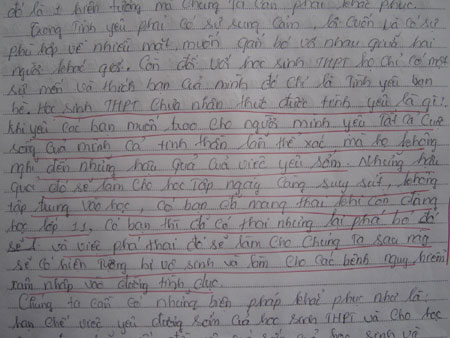 đó là 1 hiện tượng mà chúng ta cần phải khắc phục.
Trong tình yêu phải có sự rung cảm, lôi cuốn và có sự
phù hợp về nhiều mặt, muốn gắn bó với nhau giữa hai
người khác giới. Còn đối với học sinh THPT họ chỉ có một
sự mến và thích bạn của mình đó chỉ là tình yêu bạn
bè. Học sinh THPT chưa nhận thức được tình yêu là gì:
khi yêu các bạn muốn trao cho người mình yêu tất cả cuộc
sống của mình cả tinh thần lẫn thể xác, mà họ không
nghĩ đến những hậu quả của việc yêu sớm. Những hậu
quả đó sẽ làm cho học tập ngày càng suy sút, không
tập trung vào học, có bạn đã mang thai khi còn đang
học lớp 11, có bạn thì đã có thai nhưng lại phá bỏ đi
và việc phá thai đó sẽ làm cho chúng ta sau này
sẽ có hiện tượng bị vô sinh và làm cho các bệnh nguy hiểm
xâm nhập vào đường tình dục.
Chúng ta cần có những biện pháp khắc phục như là:
hạn chế việc yêu đương sớm của học sinh THPT và cho học
sinh và